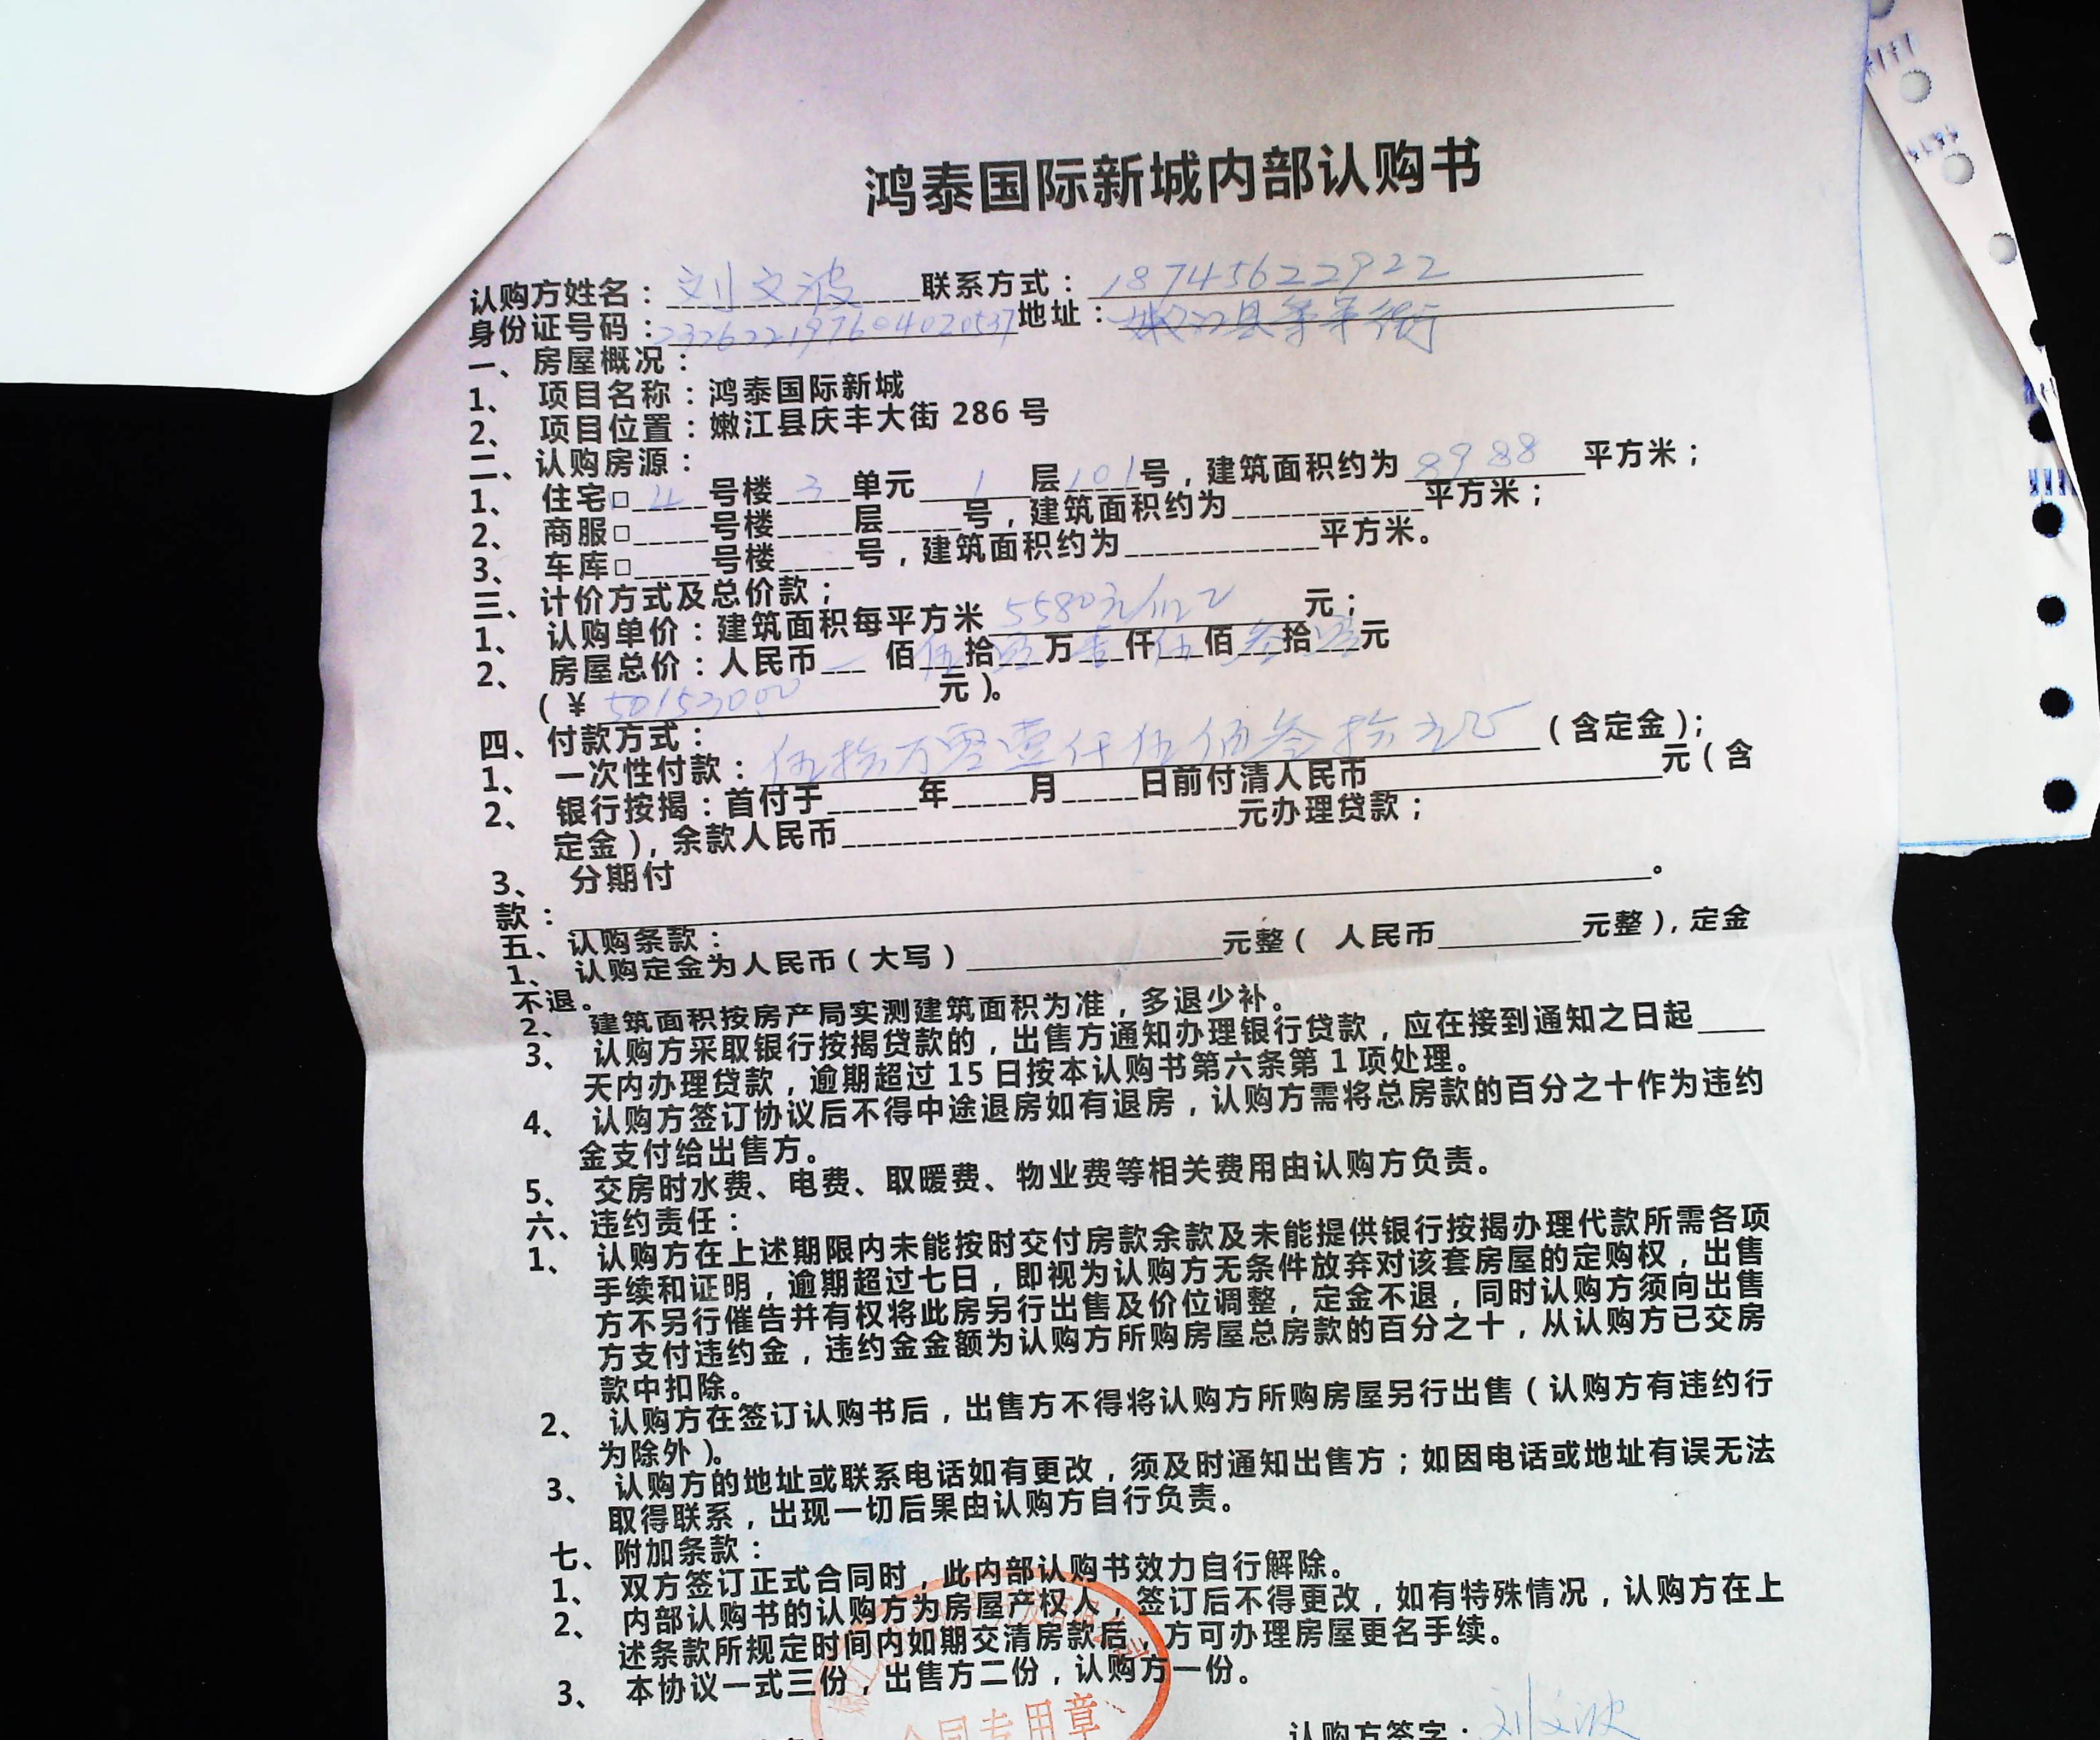 鸿泰国际新城内部认购书
认购方姓名：刘文波 联系方式：18745622922
身份证号码：232622197604020537 地址：嫩江县 街
一、房屋概况：
1、 项目名称：鸿泰国际新城
2、 项目位置：嫩江县庆丰大街 286 号
二、认购房源：
1、 住宅□ 4 号楼 3 单元 1 层 101 号，建筑面积约为 89.88 平方米；
2、 商服□______号楼______层______号，建筑面积约为____________平方米；
3、 车库□______号楼______号，建筑面积约为____________平方米。
三、计价方式及总价款；
1、 认购单价：建筑面积每平方米 5580元/m2 元；
2、 房屋总价：人民币 佰 伍 拾 零 万 壹 仟 伍 佰 叁 拾 零 元
（￥ 501530.00 元）。
四、付款方式：
1、 一次性付款：伍拾万零壹仟伍佰叁拾元正（含定金）；
2、 银行按揭：首付于______年_____月_____日前付清人民币____________元（含
定金），余款人民币____________元办理贷款；
3、 分期付
款：____________。
五、认购条款：
1、 认购定金为人民币（大写）____________元整（ 人民币_________元整），定金
不退。
2、 建筑面积按房产局实测建筑面积为准，多退少补。
3、 认购方采取银行按揭贷款的，出售方通知办理银行贷款，应在接到通知之日起____
天内办理贷款，逾期超过 15 日按本认购书第六条第 1 项处理。
4、 认购方签订协议后不得中途退房如有退房，认购方需将总房款的百分之十作为违约
金支付给出售方。
5、 交房时水费、电费、取暖费、物业费等相关费用由认购方负责。
六、违约责任：
1、 认购方在上述期限内未能按时交付房款余款及未能提供银行按揭办理代款所需各项
手续和证明，逾期超过七日，即视为认购方无条件放弃对该套房屋的定购权，出售
方不另行催告并有权将此房另行出售及价位调整，定金不退，同时认购方须向出售
方支付违约金，违约金金额为认购方所购房屋总房款的百分之十，从认购方已交房
款中扣除。
2、 认购方在签订认购书后，出售方不得将认购方所购房屋另行出售（认购方有违约行
为除外）。
3、 认购方的地址或联系电话如有更改，须及时通知出售方；如因电话或地址有误无法
取得联系，出现一切后果由认购方自行负责。
七、附加条款：
1、 双方签订正式合同时，此内部认购书效力自行解除。
2、 内部认购书的认购方为房屋产权人，签订后不得更改，如有特殊情况，认购方在上
述条款所规定时间内如期交清房款后，方可办理房屋更名手续。
3、 本协议一式三份，出售方二份，认购方一份。
合同专用章
认购方签字：刘文波